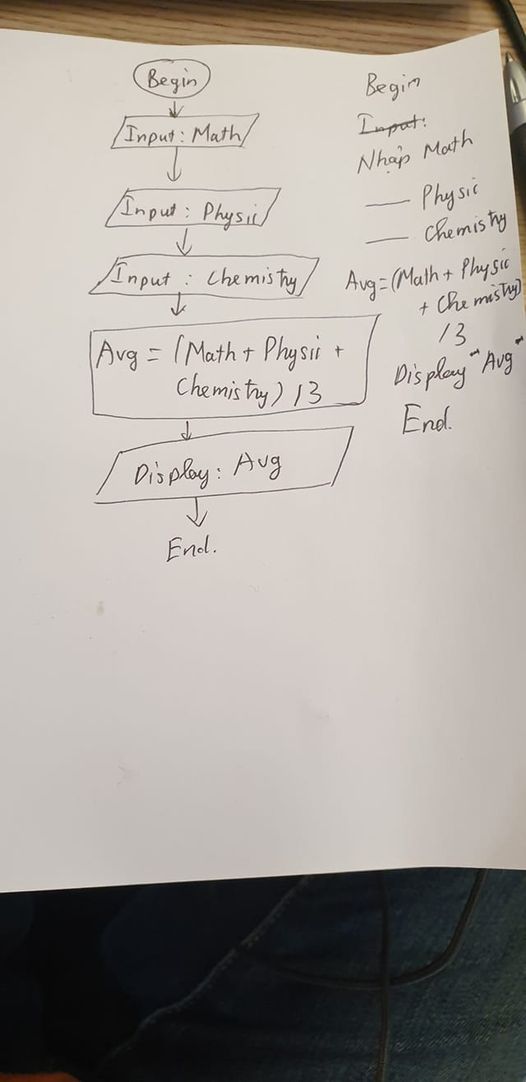 Begin
Input: Math
Input: Physic
Input: Chemistry
Avg = (Math + Physic +
Chemistry) /3
Display: Avg
End.
Begin
Input:
Nhập Math
Physic
Chemistry
Avg=(Math + Physic
+ Chemistry)
/3
Display "Avg"
End.